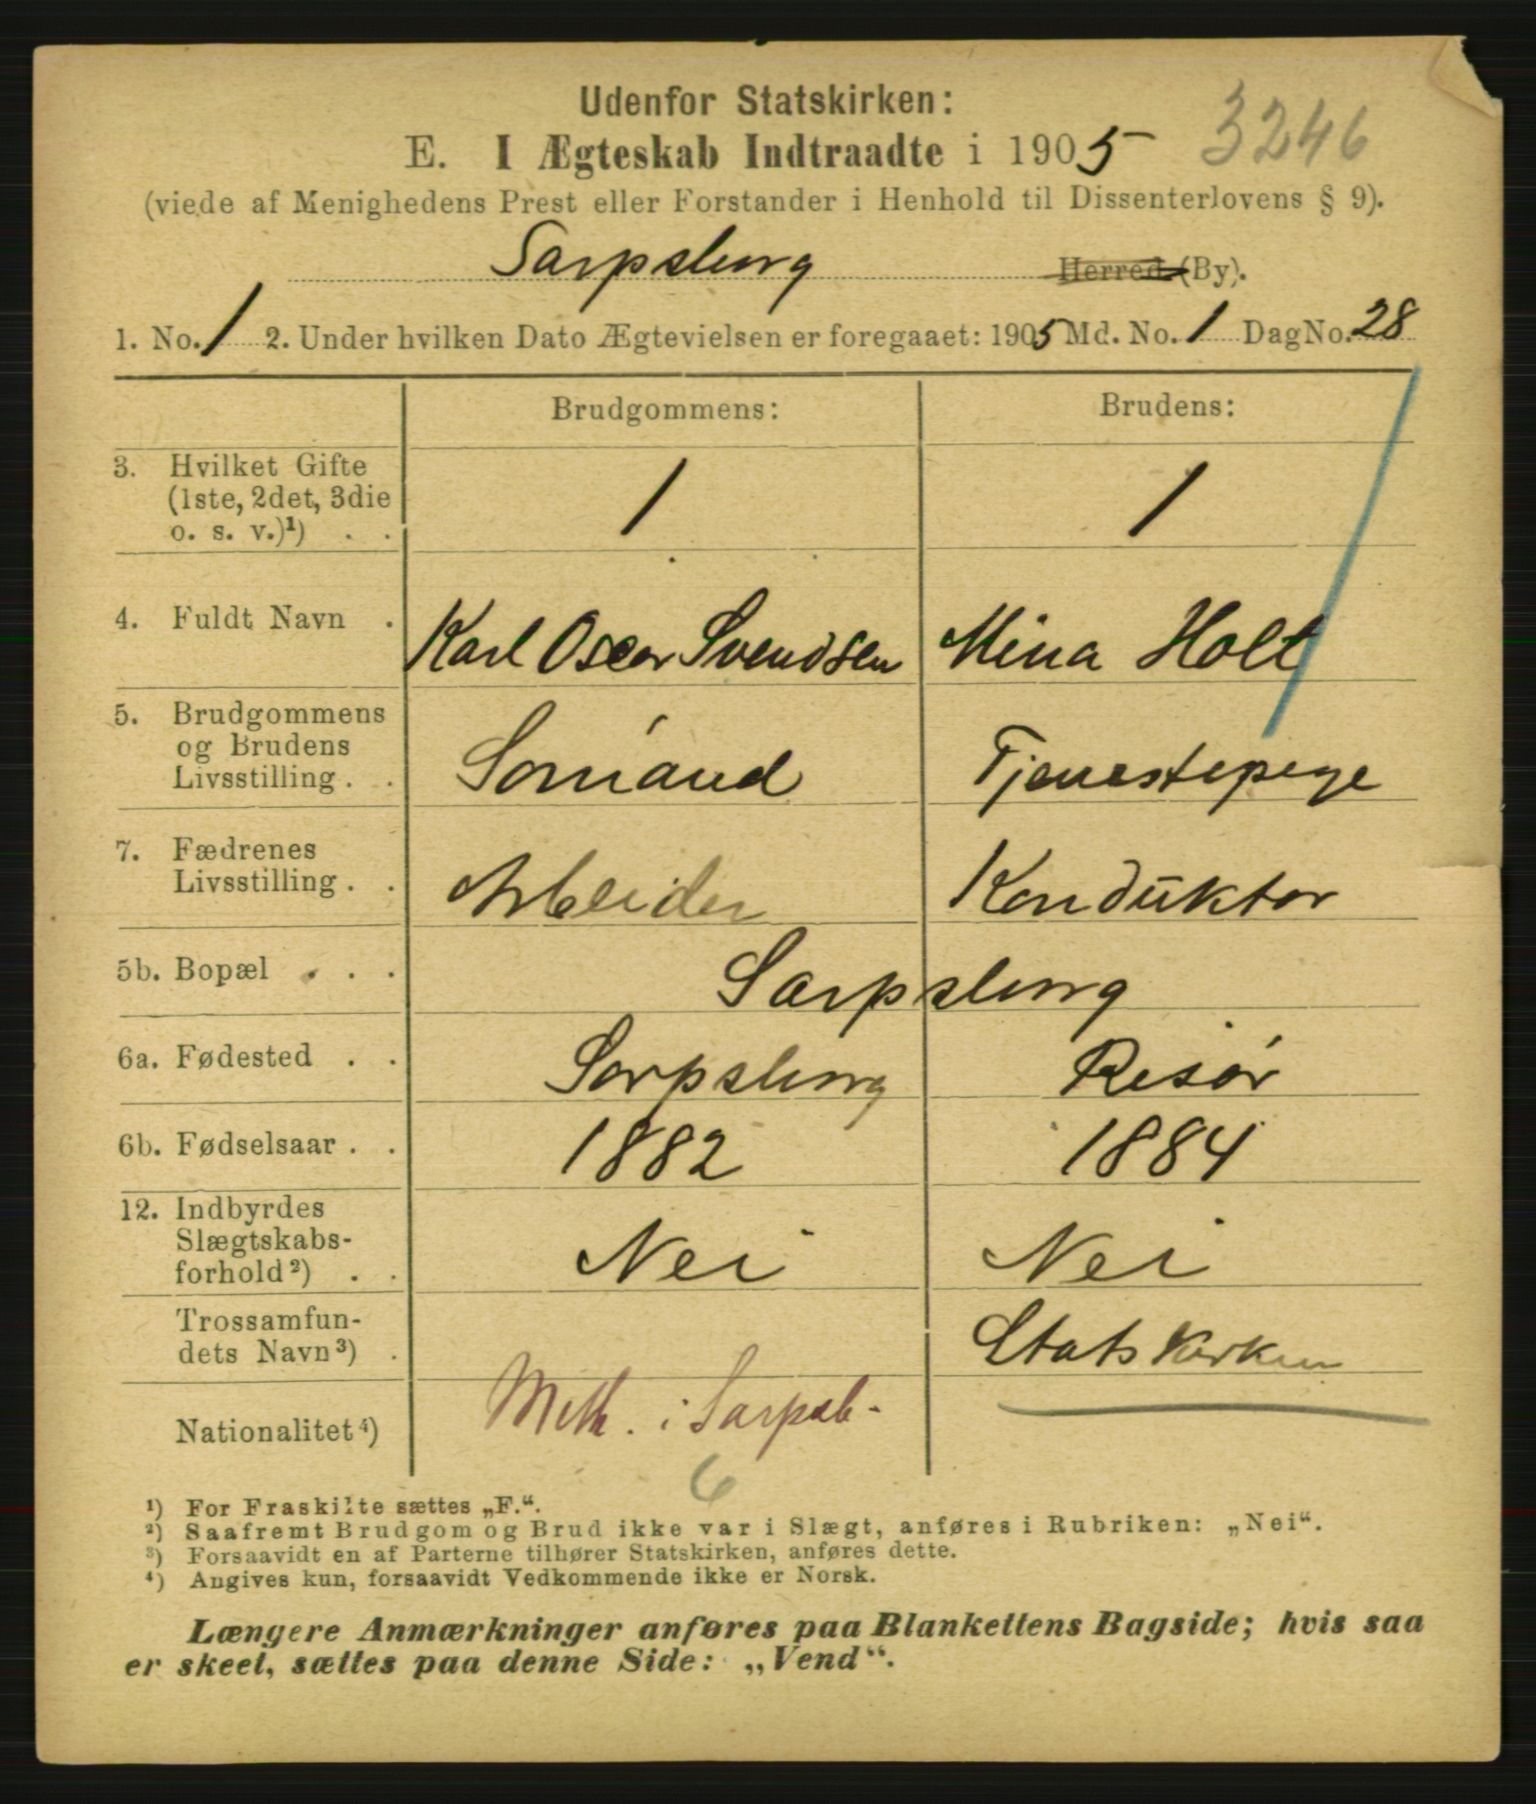 Udenfor Statskirken:
E. I Ægteskab Indtraadte i 1905 3246
(viede af Menighedens Prest eller Forstander i Henhold til Dissenterlovens § 9).
Sarpsborg Herred (By).
1. No. 1 2. Under hvilken Dato Ægtevielsen er foregaaet: 1905 Md. No. 1 Dag No. 28
Brudgommens: Brudens:
3. Hvilket Gifte
(1ste, 2det, 3die
o. s. v.)¹) . . 1 1
4. Fuldt Navn . Karl Oscar Svendsen Mina Holt
5. Brudgommens
og Brudens
Livsstilling . . Sömand Tjenestepige
7. Fædrenes
Livsstilling . . Arbeider Konduktør
5b. Bopæl . . . Sarpsborg
6a. Fødested . . Sarpsborg Risør
6b. Fødselsaar . . 1882 1884
12. Indbyrdes
Slægtskabs-
forhold²) . . Nei Nei
Trossamfun-
dets Navn³) . Meth. i Sarpsb. Statskirken
Nationalitet⁴)
6
¹) For Fraskilte sættes „F.“.
²) Saafremt Brudgom og Brud ikke var i Slægt, anføres i Rubriken: „Nei“.
³) Forsaavidt en af Parterne tilhører Statskirken, anføres dette.
⁴) Angives kun, forsaavidt Vedkommende ikke er Norsk.
Længere Anmærkninger anføres paa Blankettens Bagside; hvis saa
er skeet, sættes paa denne Side: „Vend“.